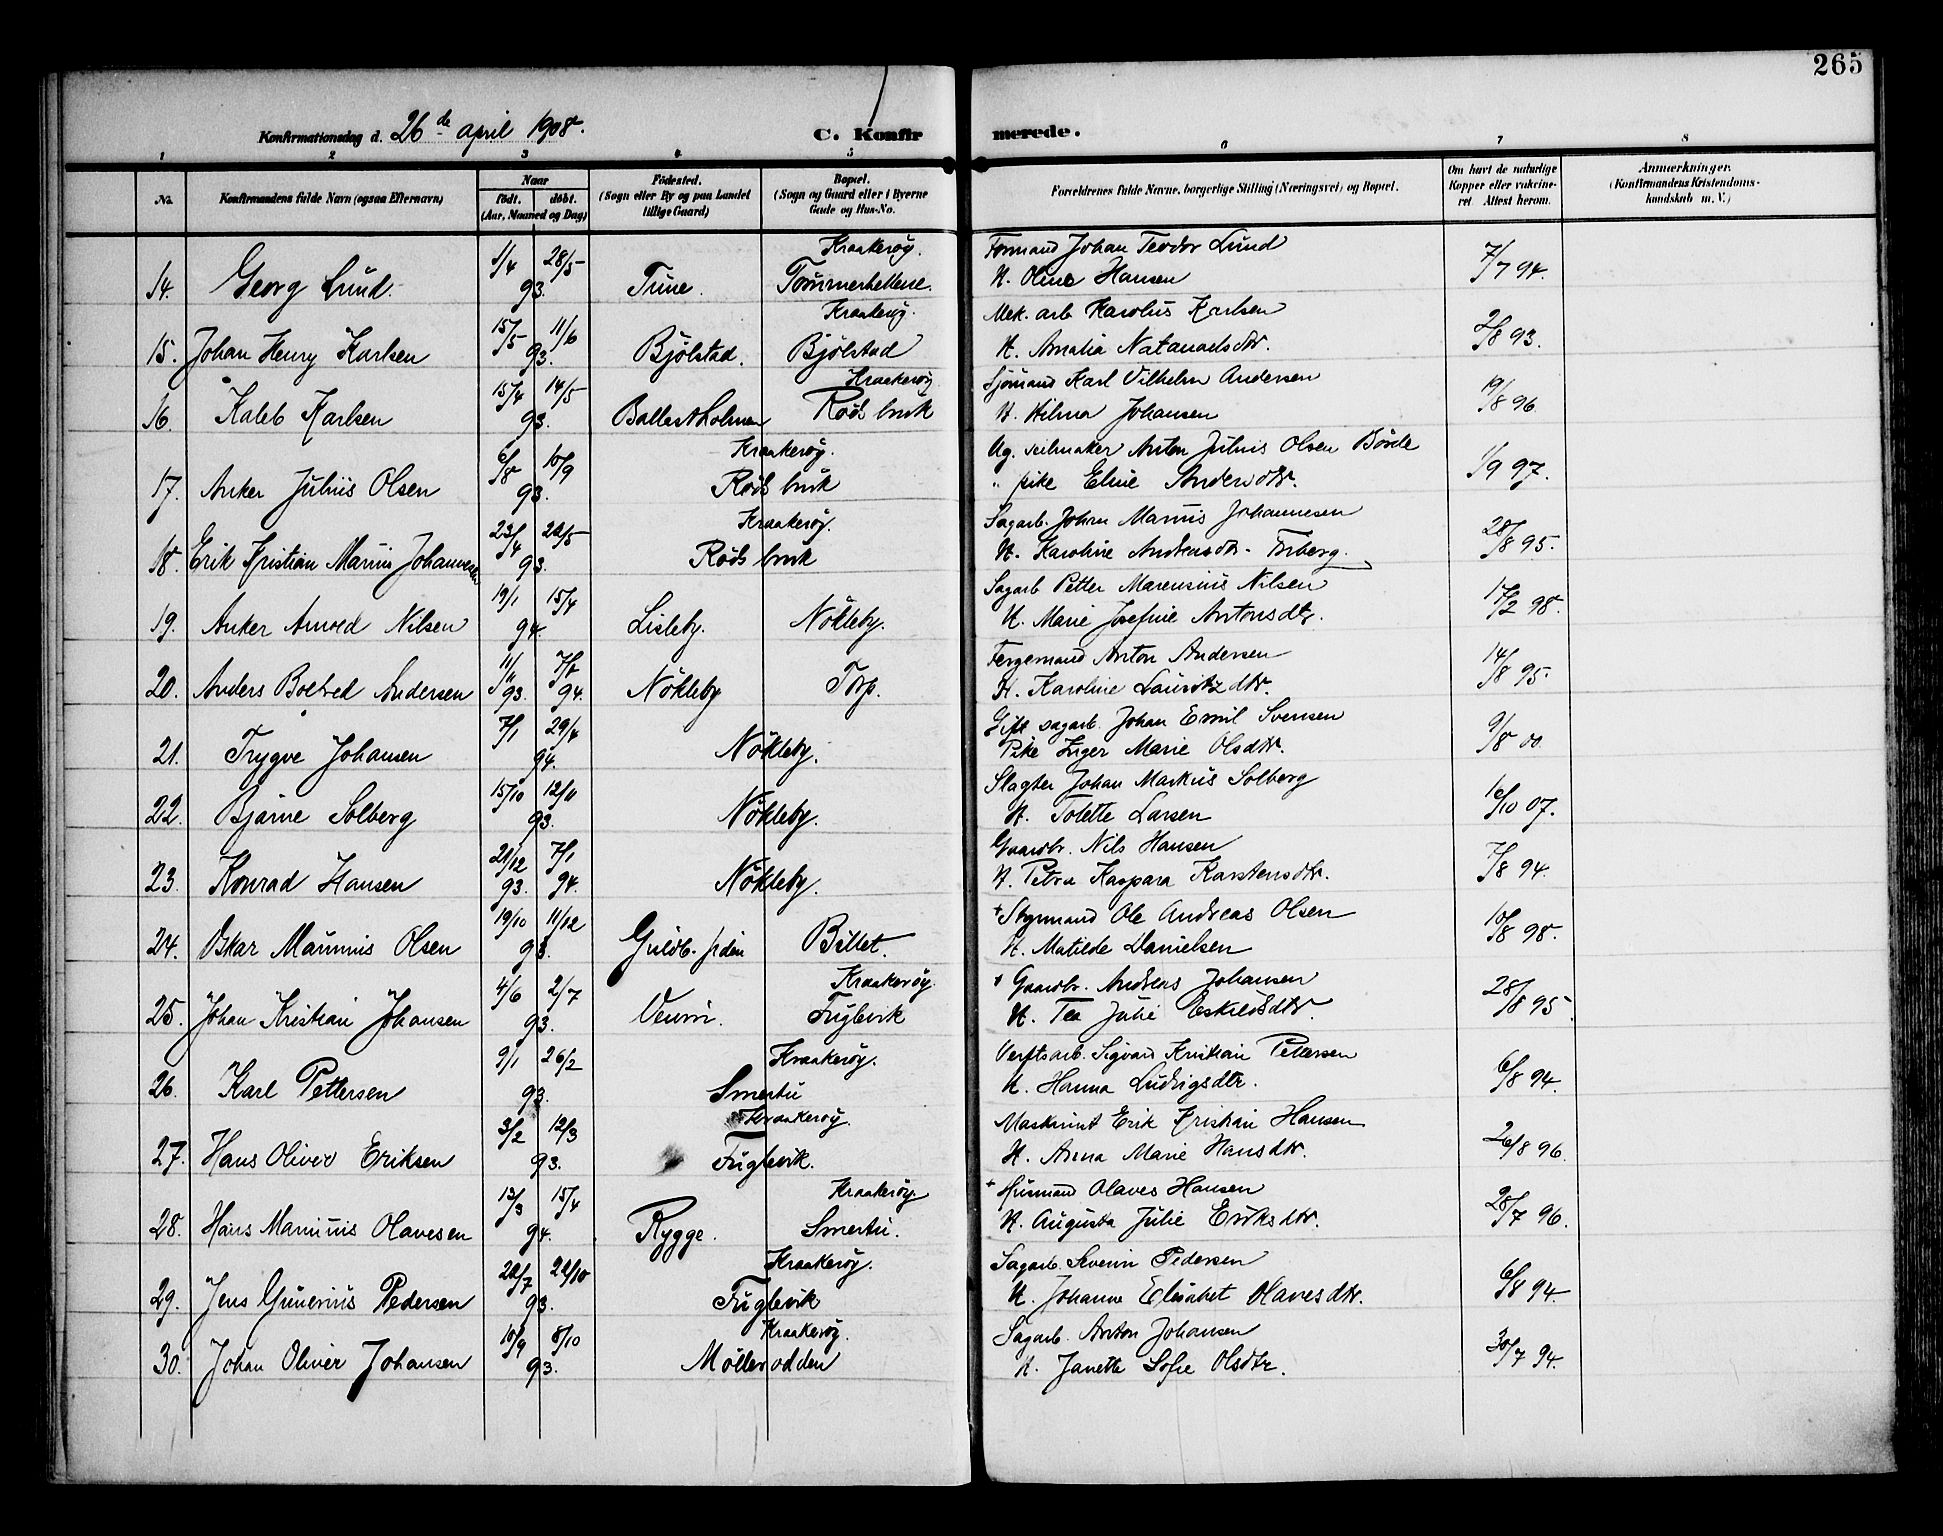 265
Konfirmationsdag d. 26de april 1908. C. Konfirmerede.
1 2 3 4 5 6 7 8
No. Konfirmandens fulde Navn (ogsaa Efternavn) Naar født. døbt. (Aar, Maaned og Dag) Fødested. (Sogn eller By og paa Landet tillige Gaard) Bopæl. (Sogn og Gaard eller i Byerne Gade og Hus-No. Forældrenes fulde Navne, borgerlige Stilling (Næringsvei) og Bopæl. Om havt de naturlige Kopper eller vakcineret Attest herom. Anmærkninger. (Konfirmandens Kristendomskundskab m. V.)
14. Georg Lund. 1/4 28/5 93. Tune. Kraakerøy. Formand Johan Teodor Lund
H. Oline Hansen 7/7 94.
15. Johan Henry Karlsen 15/5 11/6 93. Bjølstad. Kraakerøy. Bjølstad Mek. arb Karolus Karlsen
H. Amalia Natanaelsdtr. 2/8 93.
16. Kaleb Karlsen 15/4 14/5 93. Ballastholmen Kraakerøy. Røds bruk Sjømand Karl Vilhelm Andersen
H. Hilma Johansen 19/8 96.
17. Anker Julius Olsen 6/8 10/9 93. Kraakerøy. Røds bruk Ug. seilmaker Anton Julius Olsen Børde
" pike Eline Andersdtr. 1/9 97.
18. Erik Kristian Marius Johannesen 23/4 22/5 93. Kraakerøy. Røds bruk Sagarb. Johan Marius Johannesen
H. Karoline Andreasdtr. Torberg. 28/8 95.
19. Anker Arnold Nilsen 19/1 15/4 94. Lisleby. Nökleby. Sagarb Petter Marensius Nilsen
H. Marie Josefine Antonsdtr. 17/2 98.
20. Anders Bottred Andersen 11/11 93. 94. Nökleby Torp. Fergemand Anton Andersen
H. Karoline Lauritzdtr. 14/8 95.
21. Trygve Johansen 7/1 29/4 94. Nökleby. Gift sagarb. Johan Emil Svensen
Pike Inger Marie Olsdtr. 9/8 00.
22. Bjarne Solberg 15/10 12/11 93. Nökleby. Slagter Johan Markus Solberg
H. Tolette Larsen 16/10 07.
23. Konrad Hansen 21/12 93. 7/1 94. Nökleby. Gaardbr. Nils Hansen
H. Petra Kaspara Karstensdtr. 7/8 94.
24. Oskar Marinius Olsen 19/10 11/12 93. Guldb. Billet. + Styrmand Ole Andreas Olsen
H. Matilde Danielsen 10/8 98.
25. Johan Kristian Johansen 4/6 2/7 93. Veum. Kraakerøy. Fuglevik + Gaardbr. Andreas Johansen
H. Tea Julie Eskildsdtr. 28/8 95.
26. Karl Pettersen 9/1 26/2 93. Kraakerøy. Smertu Verftsarb. Sigvard Kristian Pettersen
H. Hanna Ludvigsdtr. 6/8 94.
27. Hans Oliver Eriksen 3/2 12/3 93. Kraakerøy. Fuglevik. Maskinist Erik Kristian Hansen
H. Anna Marie Hansdtr. 26/8 96.
28. Hans Marinius Olavesen 13/3 15/4 94. Rygge. Kraakerøy. Smertu. + Husmand Olaves Hansen
H. Augusta Julie Eriksdtr. 28/7 96.
29. Jens Gunerius Pedersen 22/7 22/10 93. Kraakerøy. Fuglevik Sagarb. Severin Pedersen
H. Johanne Elisabet Olavesdtr. 6/8 94.
30. Johan Oliver Johansen 10/9 8/10 93. Kraakerøy. Möllerodden Sagarb. Anton Johansen
H. Janette Sofie Olsdtr. 30/7 94.